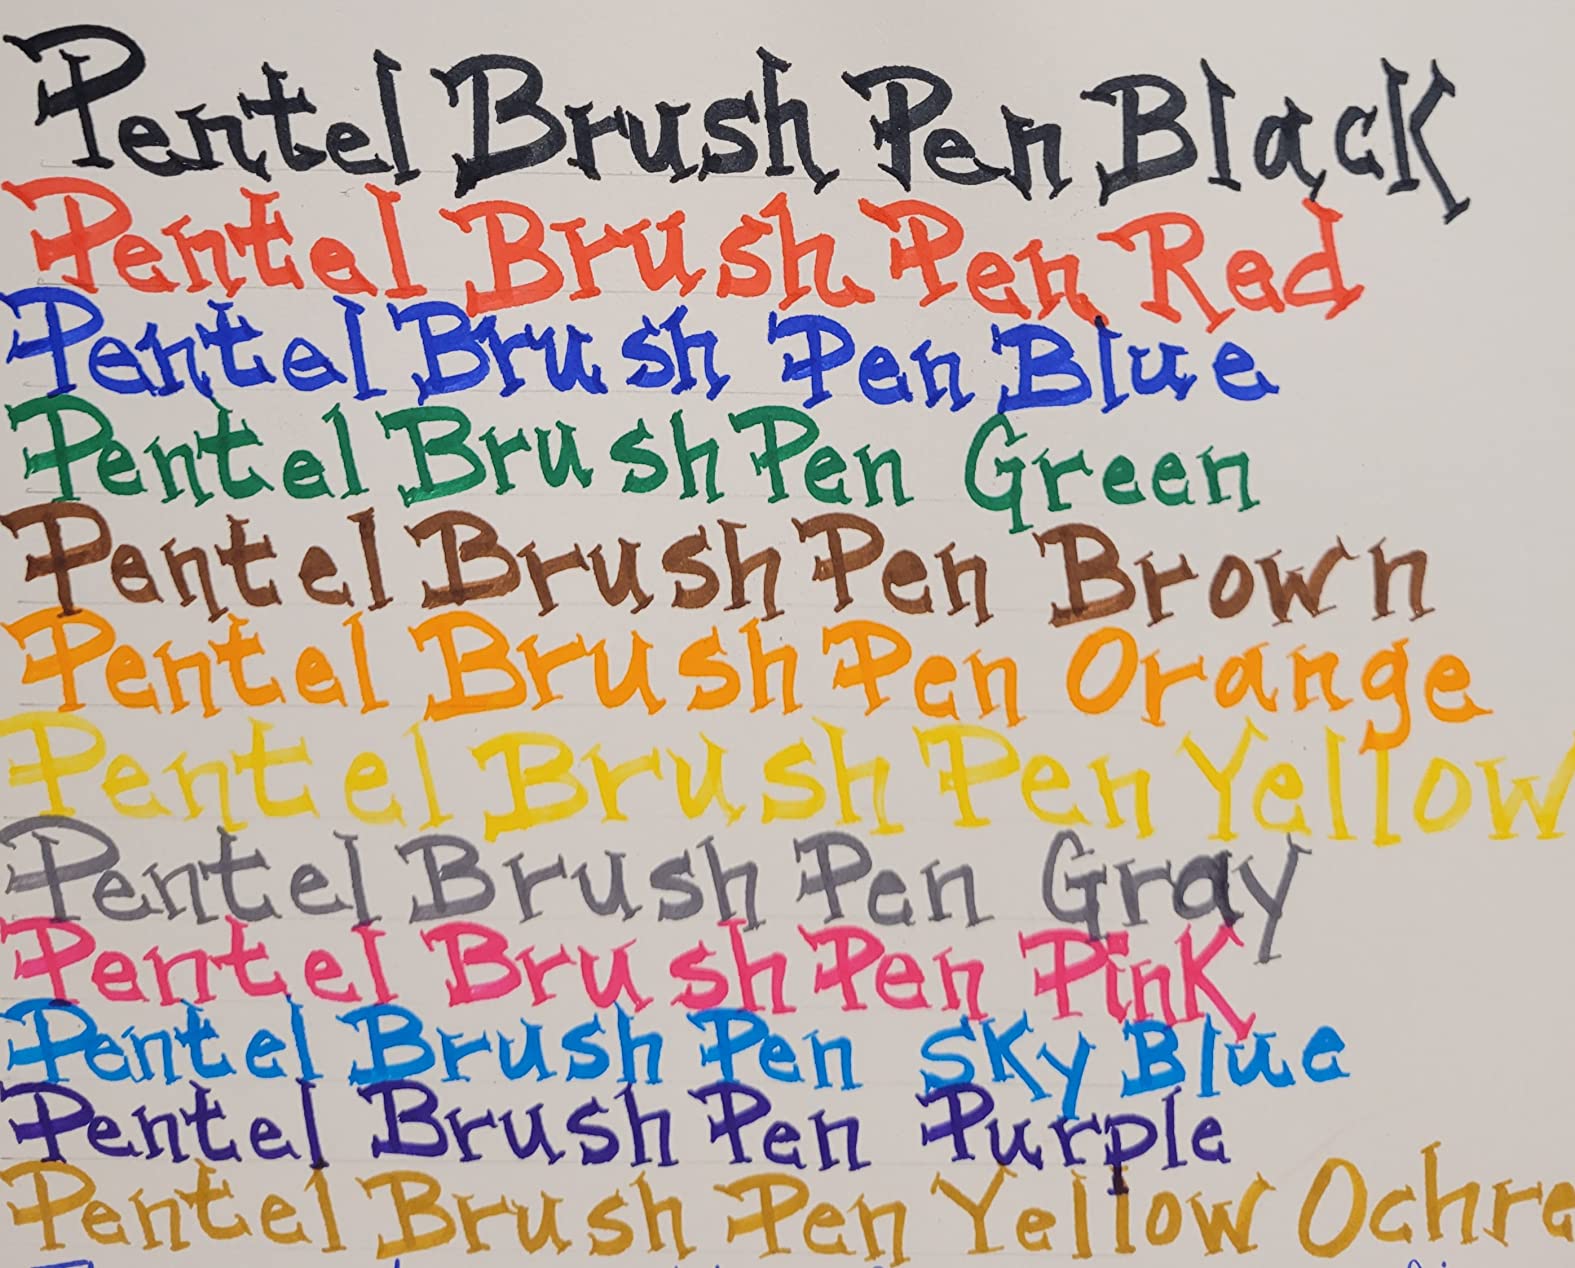 Pentel Brush Pen Black
Pentel Brush Pen Red
Pentel Brush Pen Blue
Pentel Brush Pen Green
Pentel Brush Pen Brown
Pentel Brush Pen Orange
Pentel Brush Pen Yellow
Pentel Brush Pen Gray
Pentel Brush Pen Pink
Pentel Brush Pen Sky Blue
Pentel Brush Pen Purple
Pentel Brush Pen Yellow Ochre